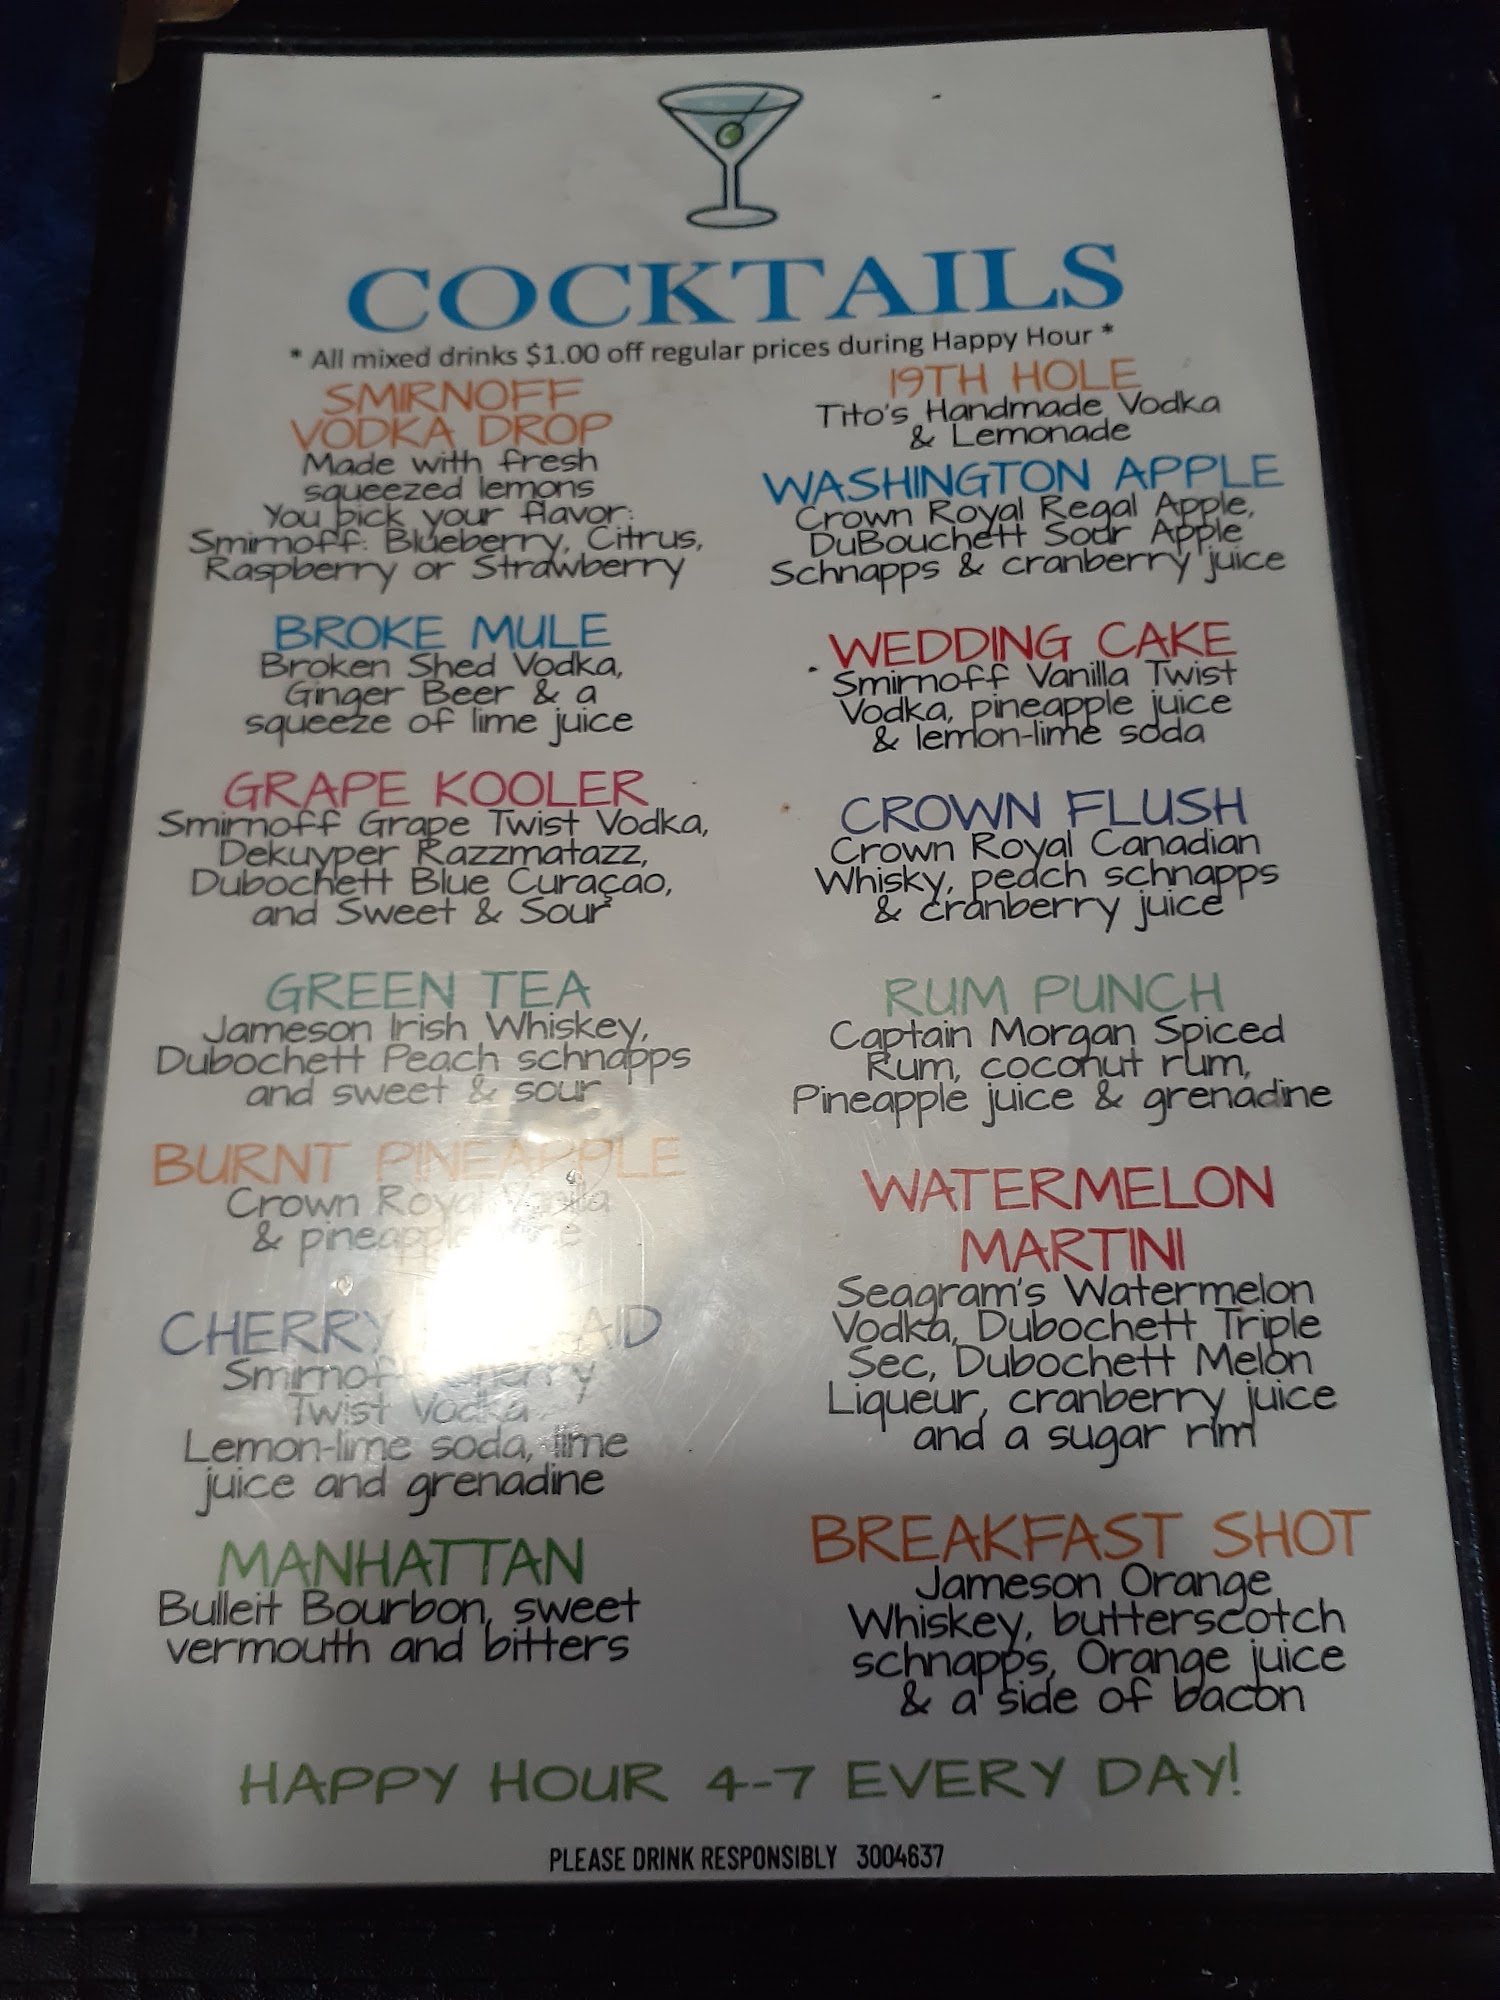 COCKTAILS
* All mixed drinks $1.00 off regular prices during Happy Hour *
SMIRNOFF
VODKA DROP
Made with fresh
squeezed lemons
You pick your flavor:
Smirnoff: Blueberry, Citrus,
Raspberry or Strawberry
BROKE MULE
Broken Shed Vodka,
Ginger Beer & a
squeeze of lime juice
GRAPE KOOLER
Smirnoff Grape Twist Vodka,
Dekuyper Razzmatazz,
Dubochett Blue Curaçao,
and Sweet & Sour
GREEN TEA
Jameson Irish Whiskey,
Dubochett Peach schnapps
and sweet & sour
BURNT PINEAPPLE
Crown Royal Vanilla
& pineapple
CHERRY
Smirnoff Cherry
Twist Vodka
Lemon-lime soda, lime
juice and grenadine
MANHATTAN
Bulleit Bourbon, sweet
vermouth and bitters
19TH HOLE
Tito's Handmade Vodka
& Lemonade
WASHINGTON APPLE
Crown Royal Regal Apple,
DuBouchett Sour Apple
Schnapps & cranberry juice
WEDDING CAKE
Smirnoff Vanilla Twist
Vodka, pineapple juice
& lemon-lime soda
CROWN FLUSH
Crown Royal Canadian
Whisky, peach schnapps
& cranberry juice
RUM PUNCH
Captain Morgan Spiced
Rum, coconut rum,
Pineapple juice & grenadine
WATERMELON
MARTINI
Seagram's Watermelon
Vodka, Dubochett Triple
Sec, Dubochett Melon
Liqueur, cranberry juice
and a sugar rim
BREAKFAST SHOT
Jameson Orange
Whiskey, butterscotch
schnapps, Orange juice
& a side of bacon
HAPPY HOUR 4-7 EVERY DAY!
PLEASE DRINK RESPONSIBLY 3004637